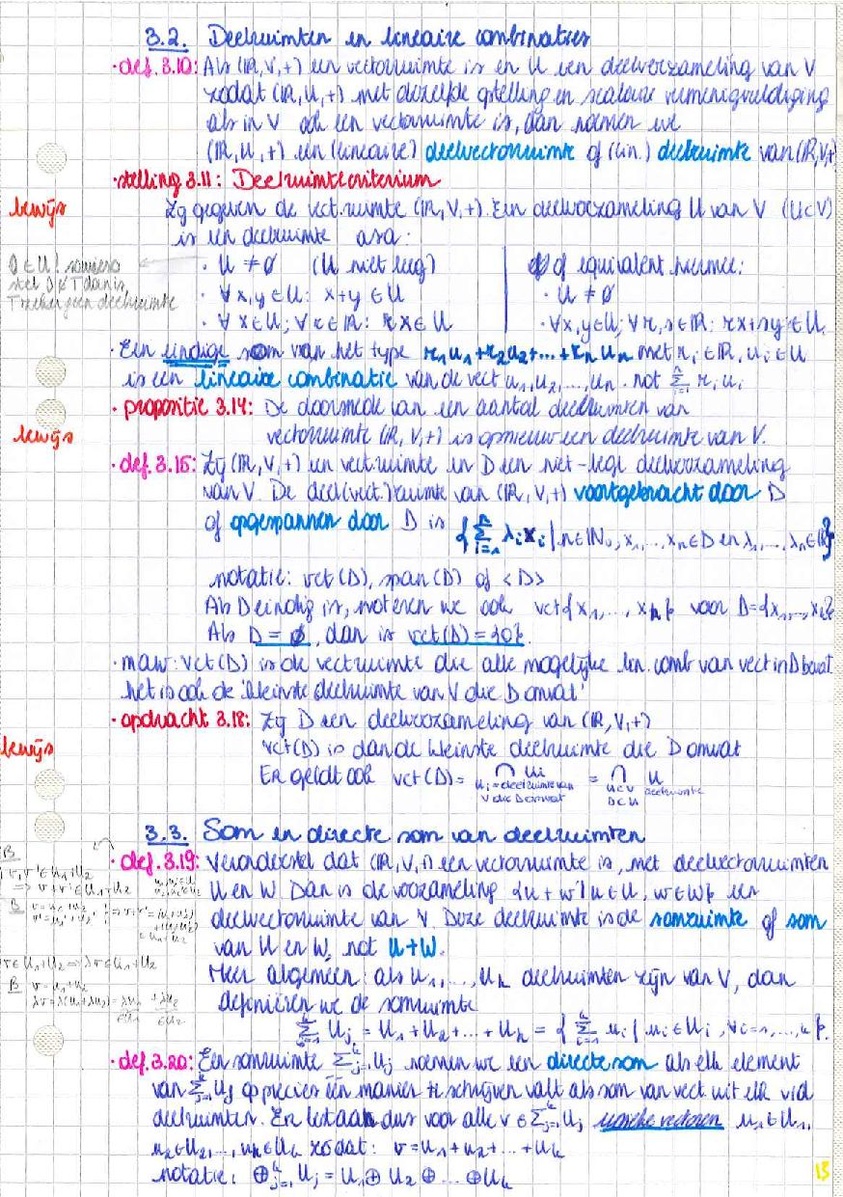 3.2. Deelruimten en lineaire combinaties
· def. 3.10: Als (ℝ,V,+) een vectorruimte is en U een deelverzameling van V
zodat (ℝ,U,+) met dezelfde optelling en scalaire vermenigvuldiging
als in V ook een vectorruimte is, dan noemen we
(ℝ,U,+) een (lineaire) deelvectorruimte of (lin.) deelruimte van (ℝ,V,+)
· stelling 3.11: Deelruimtecriterium
bewijs
Zij gegeven de vect.ruimte (ℝ,V,+). Een deelverzameling U van V (U⊂V)
is een deelruimte asa:
· U ≠ ∅ (U niet leeg)
· ∀ x,y ∈ U: x+y ∈ U
· ∀ x ∈ U; ∀ r ∈ ℝ: rx ∈ U
of equivalent hiermee:
· U ≠ ∅
· ∀x,y∈U; ∀r,s∈ℝ: rx+sy ∈ U.
0 ∈ U! sowieso
stel 0 ∉ T dan is
T zeker geen deelruimte
· Een eindige som van het type r₁u₁+r₂u₂+...+rₙuₙ met rᵢ∈ℝ, uᵢ∈U
is een lineaire combinatie van de vect u₁,u₂,...,uₙ. not Σⁿᵢ₌₁ rᵢuᵢ
· propositie 3.14: De doorsnede van een aantal deelruimten van
bewijs
vectorruimte (ℝ,V,+) is opnieuw een deelruimte van V.
· def. 3.15: Zij (ℝ,V,+) een vect.ruimte en D een niet-lege deelverzameling
van V. De deel(vect.)ruimte van (ℝ,V,+) voortgebracht door D
of opgespannen door D is {Σⁿᵢ₌₁ λᵢxᵢ | n∈ℕ₀, x₁,...,xₙ∈D en λ₁,...,λₙ∈ℝ}
notatie: vct(D), span(D) of <D>
Als D eindig is, noteren we ook vct{x₁,...,xₖ} voor D={x₁,...,xₖ}
Als D = ∅, dan is vct(D) = {0}.
· maw: vct(D) is de vectruimte die alle mogelijke lin. comb van vect in D bevat
het is ook de 'kleinste deelruimte van V die D omvat'
· opdracht 3.18: Zij D een deelverzameling van (ℝ,V,+)
bewijs
vct(D) is dan de kleinste deelruimte die D omvat
Er geldt ook vct(D) = ∩ Uᵢ = ∩ U
Uᵢ = deelruimte van V die D omvat
U⊂V deelruimte
D⊂U
3.3. Som en directe som van deelruimten
· def. 3.19: Veronderstel dat (ℝ,V,+) een vectorruimte is, met deelvectorruimten
U en W. Dan is de verzameling {u+w | u∈U, w∈W} een
deelvectorruimte van V. Deze deelruimte is de somruimte of som
van U en W, not U+W.
Meer algemeen: als U₁,...,Uₖ deelruimten zijn van V, dan
definiëren we de somruimte
Σᵏⱼ₌₁ Uⱼ = U₁+U₂+...+Uₖ = {Σᵏᵢ₌₁ uᵢ | uᵢ∈Uᵢ, ∀i=1,...,k}.
B
v,v'∈U₁+U₂
⇒ v+v'∈U₁+U₂
B v=u₁+u₂
v'=u₁'+u₂'
v∈U₁+U₂ ⇒ λv∈U₁+U₂
B v=u₁+u₂
· def. 3.20: Een somruimte Σᵏⱼ₌₁ Uⱼ noemen we een directe som als elk element
van Σᵏⱼ₌₁ Uⱼ op precies één manier te schrijven valt als som van vect uit elk vd
deelruimten. Er bestaan dus voor alle v ∈ Σᵏⱼ₌₁ Uⱼ unieke vectoren u₁∈U₁,
u₂∈U₂,..., uₖ∈Uₖ zodat: v=u₁+u₂+...+uₖ
notatie: ⊕ᵏⱼ₌₁ Uⱼ = U₁⊕U₂⊕...⊕Uₖ
13